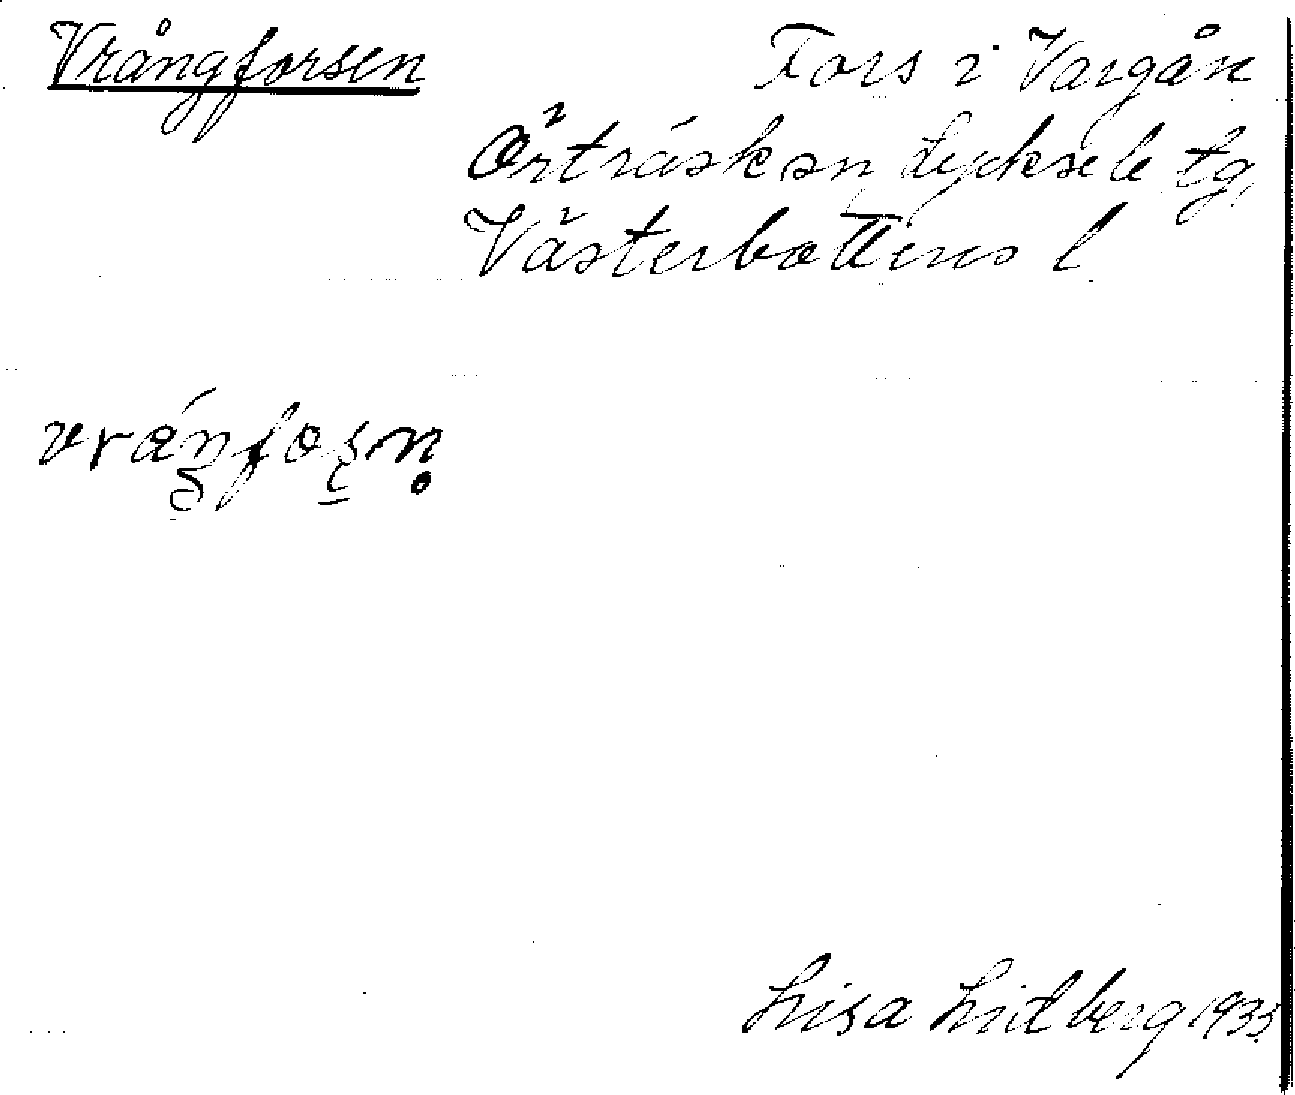 Vrångforsen
Fors i Vargån
Örträsk sn, Lycksele tg,
Västerbottens l.
Lisa Lidberg 1933